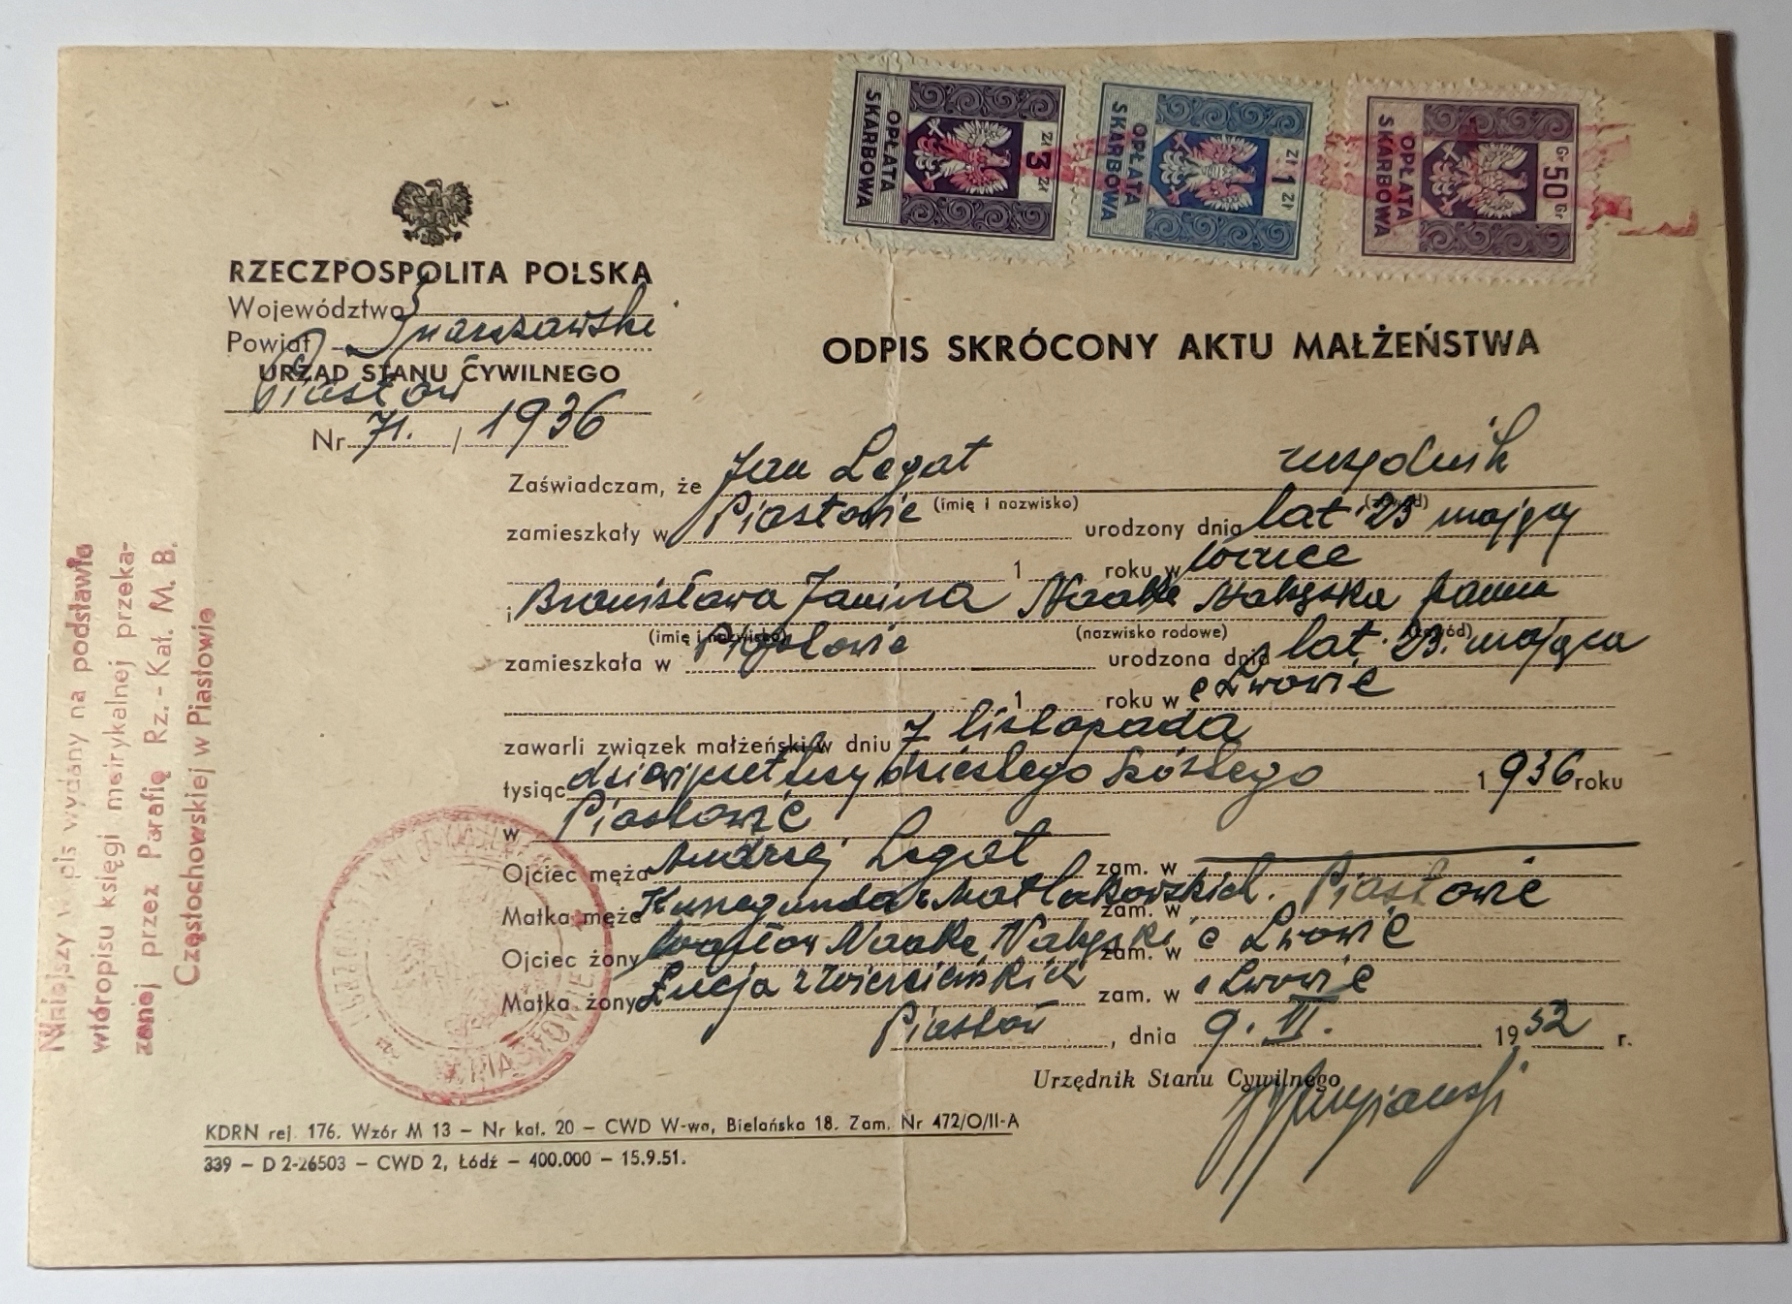 Niniejszy wypis wydany na podstawie
wtóropisu księgi metrykalnej przeka-
zanej przez Parafię Rz.-Kat. M. B.
Częstochowskiej w Piastowie
OPŁATA SKARBOWA
Zł 3 Zł
OPŁATA SKARBOWA
Zł 1 Zł
OPŁATA SKARBOWA
Gr 50 Gr
RZECZPOSPOLITA POLSKA
Województwo
Powiat
URZĄD STANU CYWILNEGO
Piastów
Nr 71. / 1936
ODPIS SKRÓCONY AKTU MAŁŻEŃSTWA
Zaświadczam, że Jan Legat urzędnik
(imię i nazwisko) (zawód)
zamieszkały w Piastowie urodzony dnia lat 23 mający
1 roku w
i Bronisława Janina Naake Nałęska panna
(imię i nazwisko) (nazwisko rodowe) (zawód)
zamieszkała w Piastowie urodzona dnia lat 23. mająca
1 roku w Lwowie
zawarli związek małżeński w dniu 7 listopada
tysiąc dziewięćset trzydziestego szóstego 1936 roku
w Piastowie
Ojciec męża Andrzej Legat zam. w
Matka męża Kunegunda z Matlakowskich. zam. w Piastowie
Ojciec żony Wacław Naake Nałęski zam. w Lwowie
Matka żony Łucja z Wiercieńskich zam. w Lwowie
Piastów, dnia 9. VI. 1952 r.
Urzędnik Stanu Cywilnego
KDRN rej. 176. Wzór M 13 – Nr kat. 20 – CWD W-wa, Bielańska 18. Zam. Nr 472/O/II-A
339 – D 2-26503 – CWD 2, Łódź – 400.000 – 15.9.51.